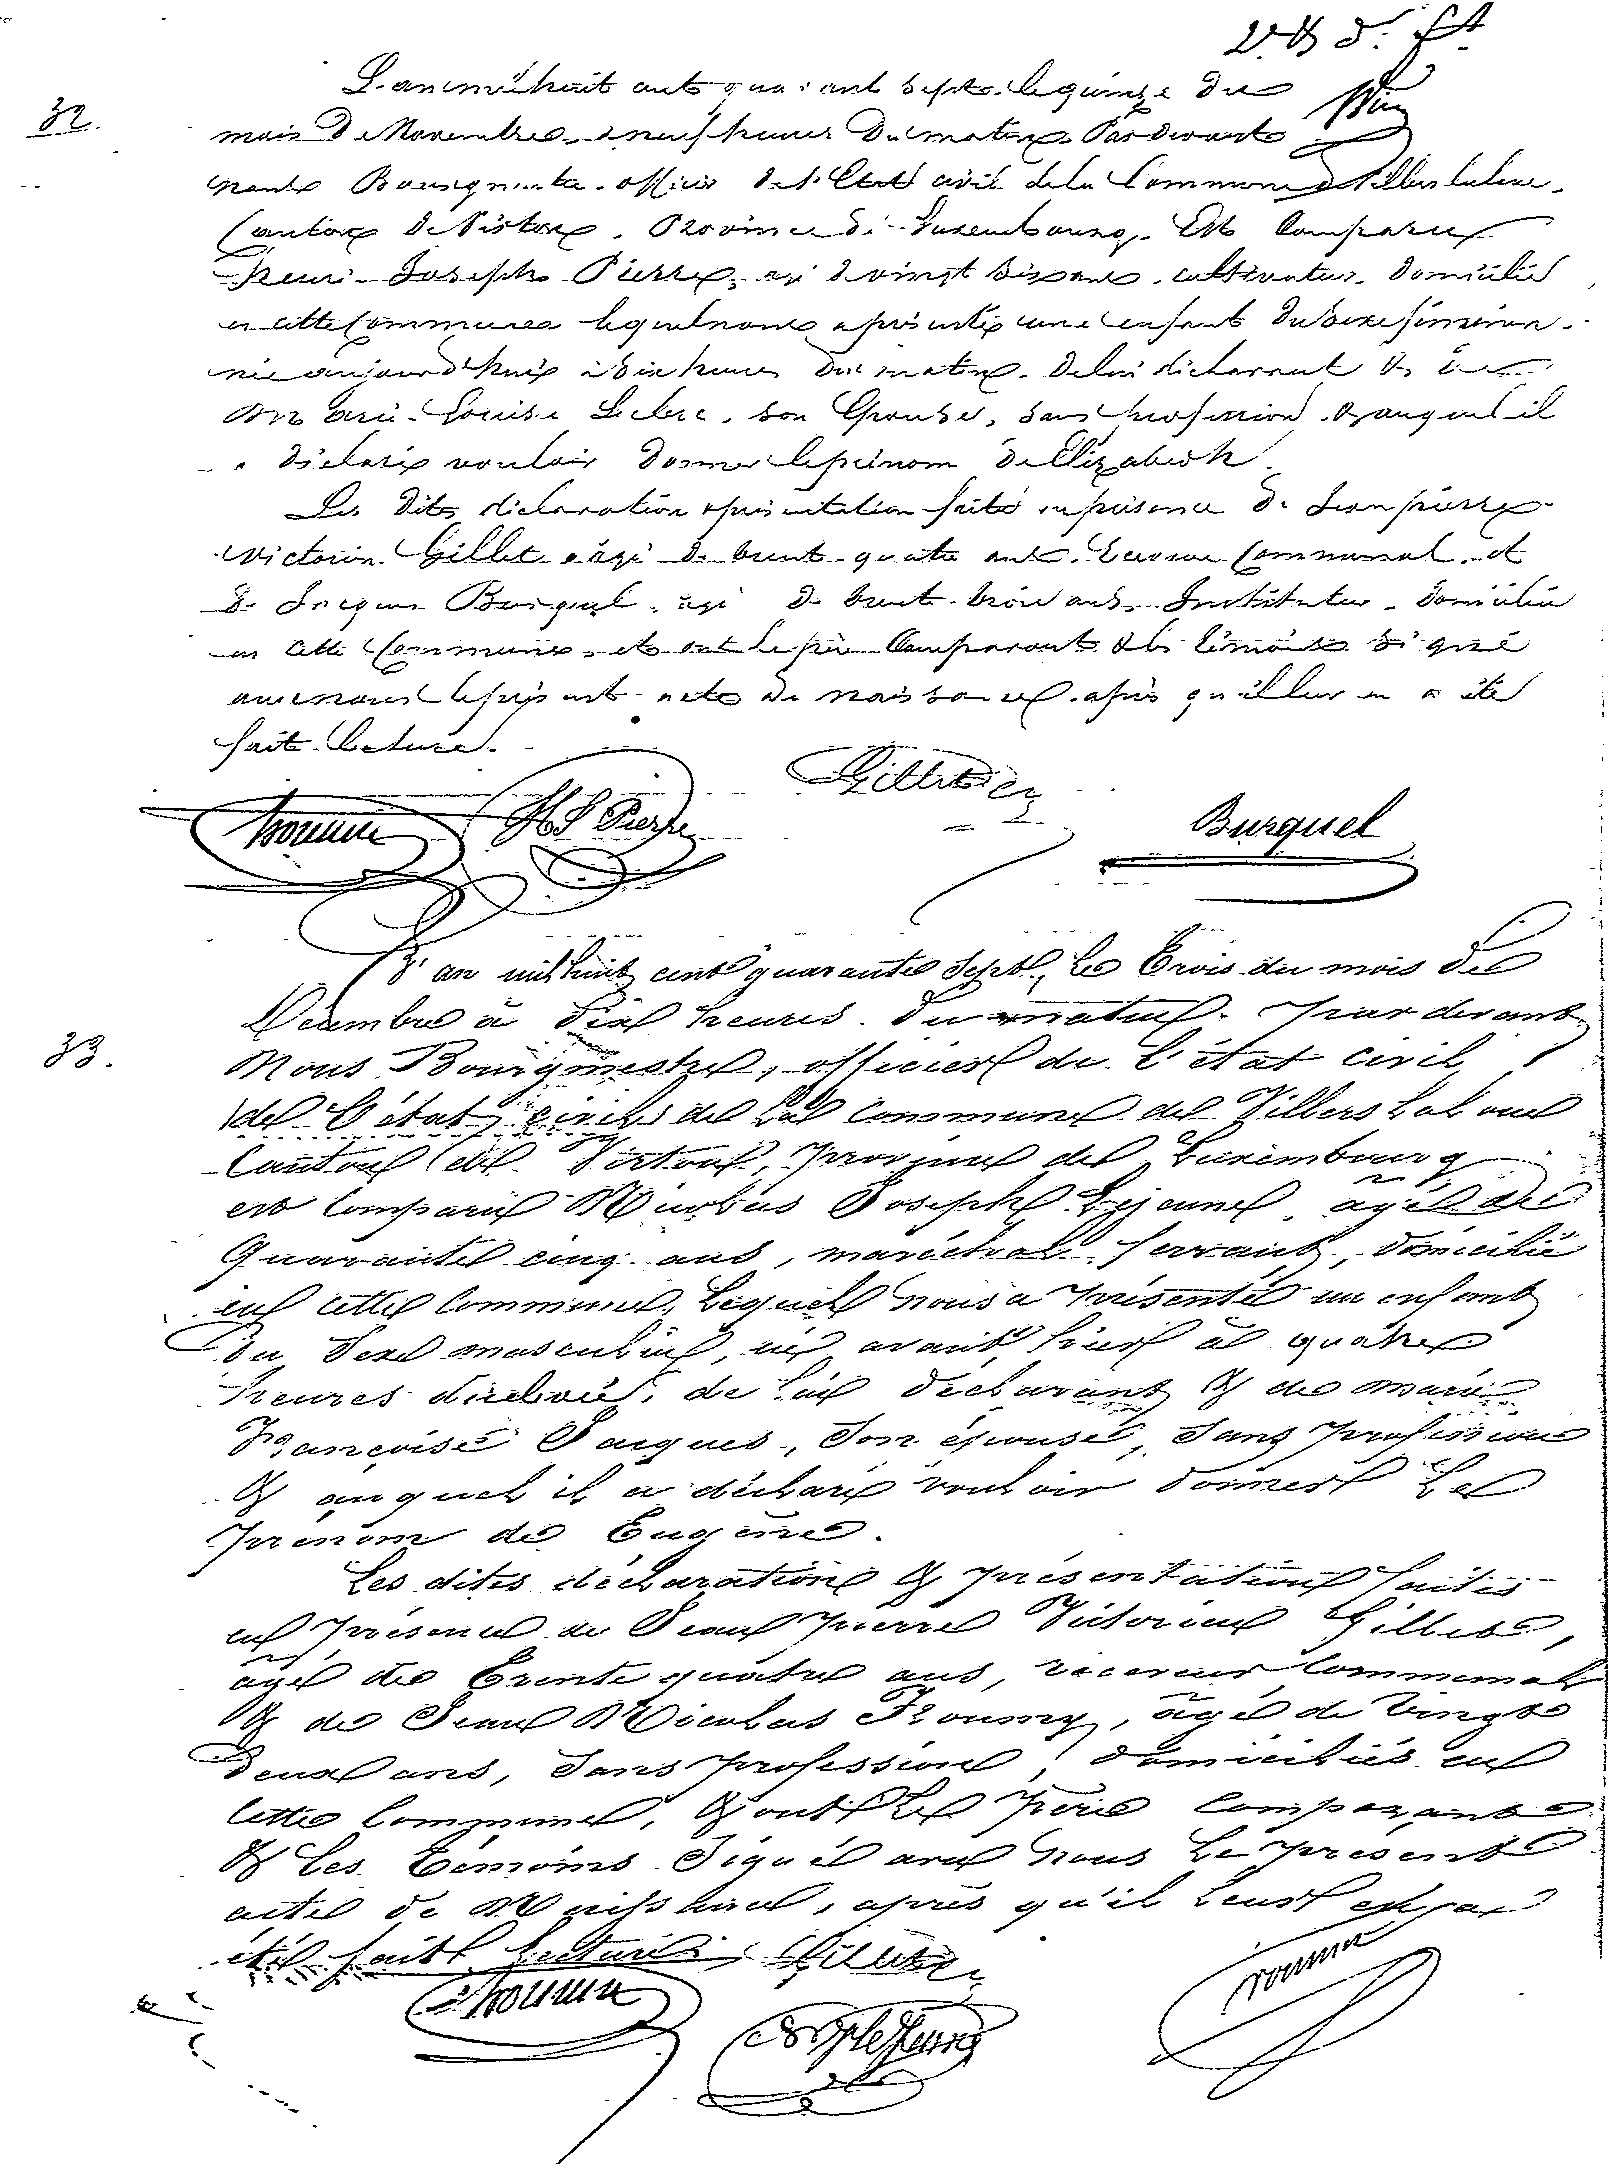 L'an mil huit cent quarante sept le quinze du
32.
mois de Novembre à neuf heures du matin. Par devant
nous Bourgmestre officier de l'Etat civil de la Commune de Villers la loue.
Canton de Virton, Province de Luxembourg. Est Comparu
henri Joseph Pierre, agé de vingt six ans, cultivateur, domicilié
en cette Commune lequel nous a présenté une enfant du sexe féminin
née aujourd'hui à six heures du matin. de lui déclarant & de
Marie Louise Leclerc, son Epouse, sans profession & auquel il
a déclaré vouloir donner le prénom de Elizabeth.
Les dites déclaration & présentation faites en présence de Jean pierre
Victorin Gillet, agé de trent quatre ans, Receveur Communal, et
de Jacques Burquel, agé de trente trois ans, Instituteur, domiciliés
en cette Commune, et ont le père Comparant & les témoins signé
avec nous le présent acte de naissance après qu'il leur en a été
fait lecture.
H J Pierre
Gillet
Burquel
L'an mil huit cent quarante sept, le trois du mois de
Décembre à dix heures du matin. par devant
33.
Nous Bourgmestre, officier de l'état civil
de l'état civil de la Commune de Villers la loue
Canton de Virton, province de Luxembourg
est Comparu Nicolas Joseph Lejeune, agé de
quarante cinq ans, maréchal ferrant, domicilié
en cette Commune, Lequel nous a présenté un enfant
du sexe masculin, né avant hier à quatre
heures du soir, de lui déclarant & de marie
Françoise Jacques, son épouse, sans profession
& auquel il a déclaré vouloir donner le
prénom de Eugène.
Les dites déclaration & présentation faites
en présence de Jean pierre Victorin Gillet,
agé de trente quatre ans, receveur Communal
& de Jean Nicolas Roumy, agé de vingt
deux ans, sans profession, domiciliés en
cette Commune, & ont le père Comparant
& les témoins signé avec nous le présent
acte de Naissance, après qu'il leur en a
été fait lecture.
Gillet